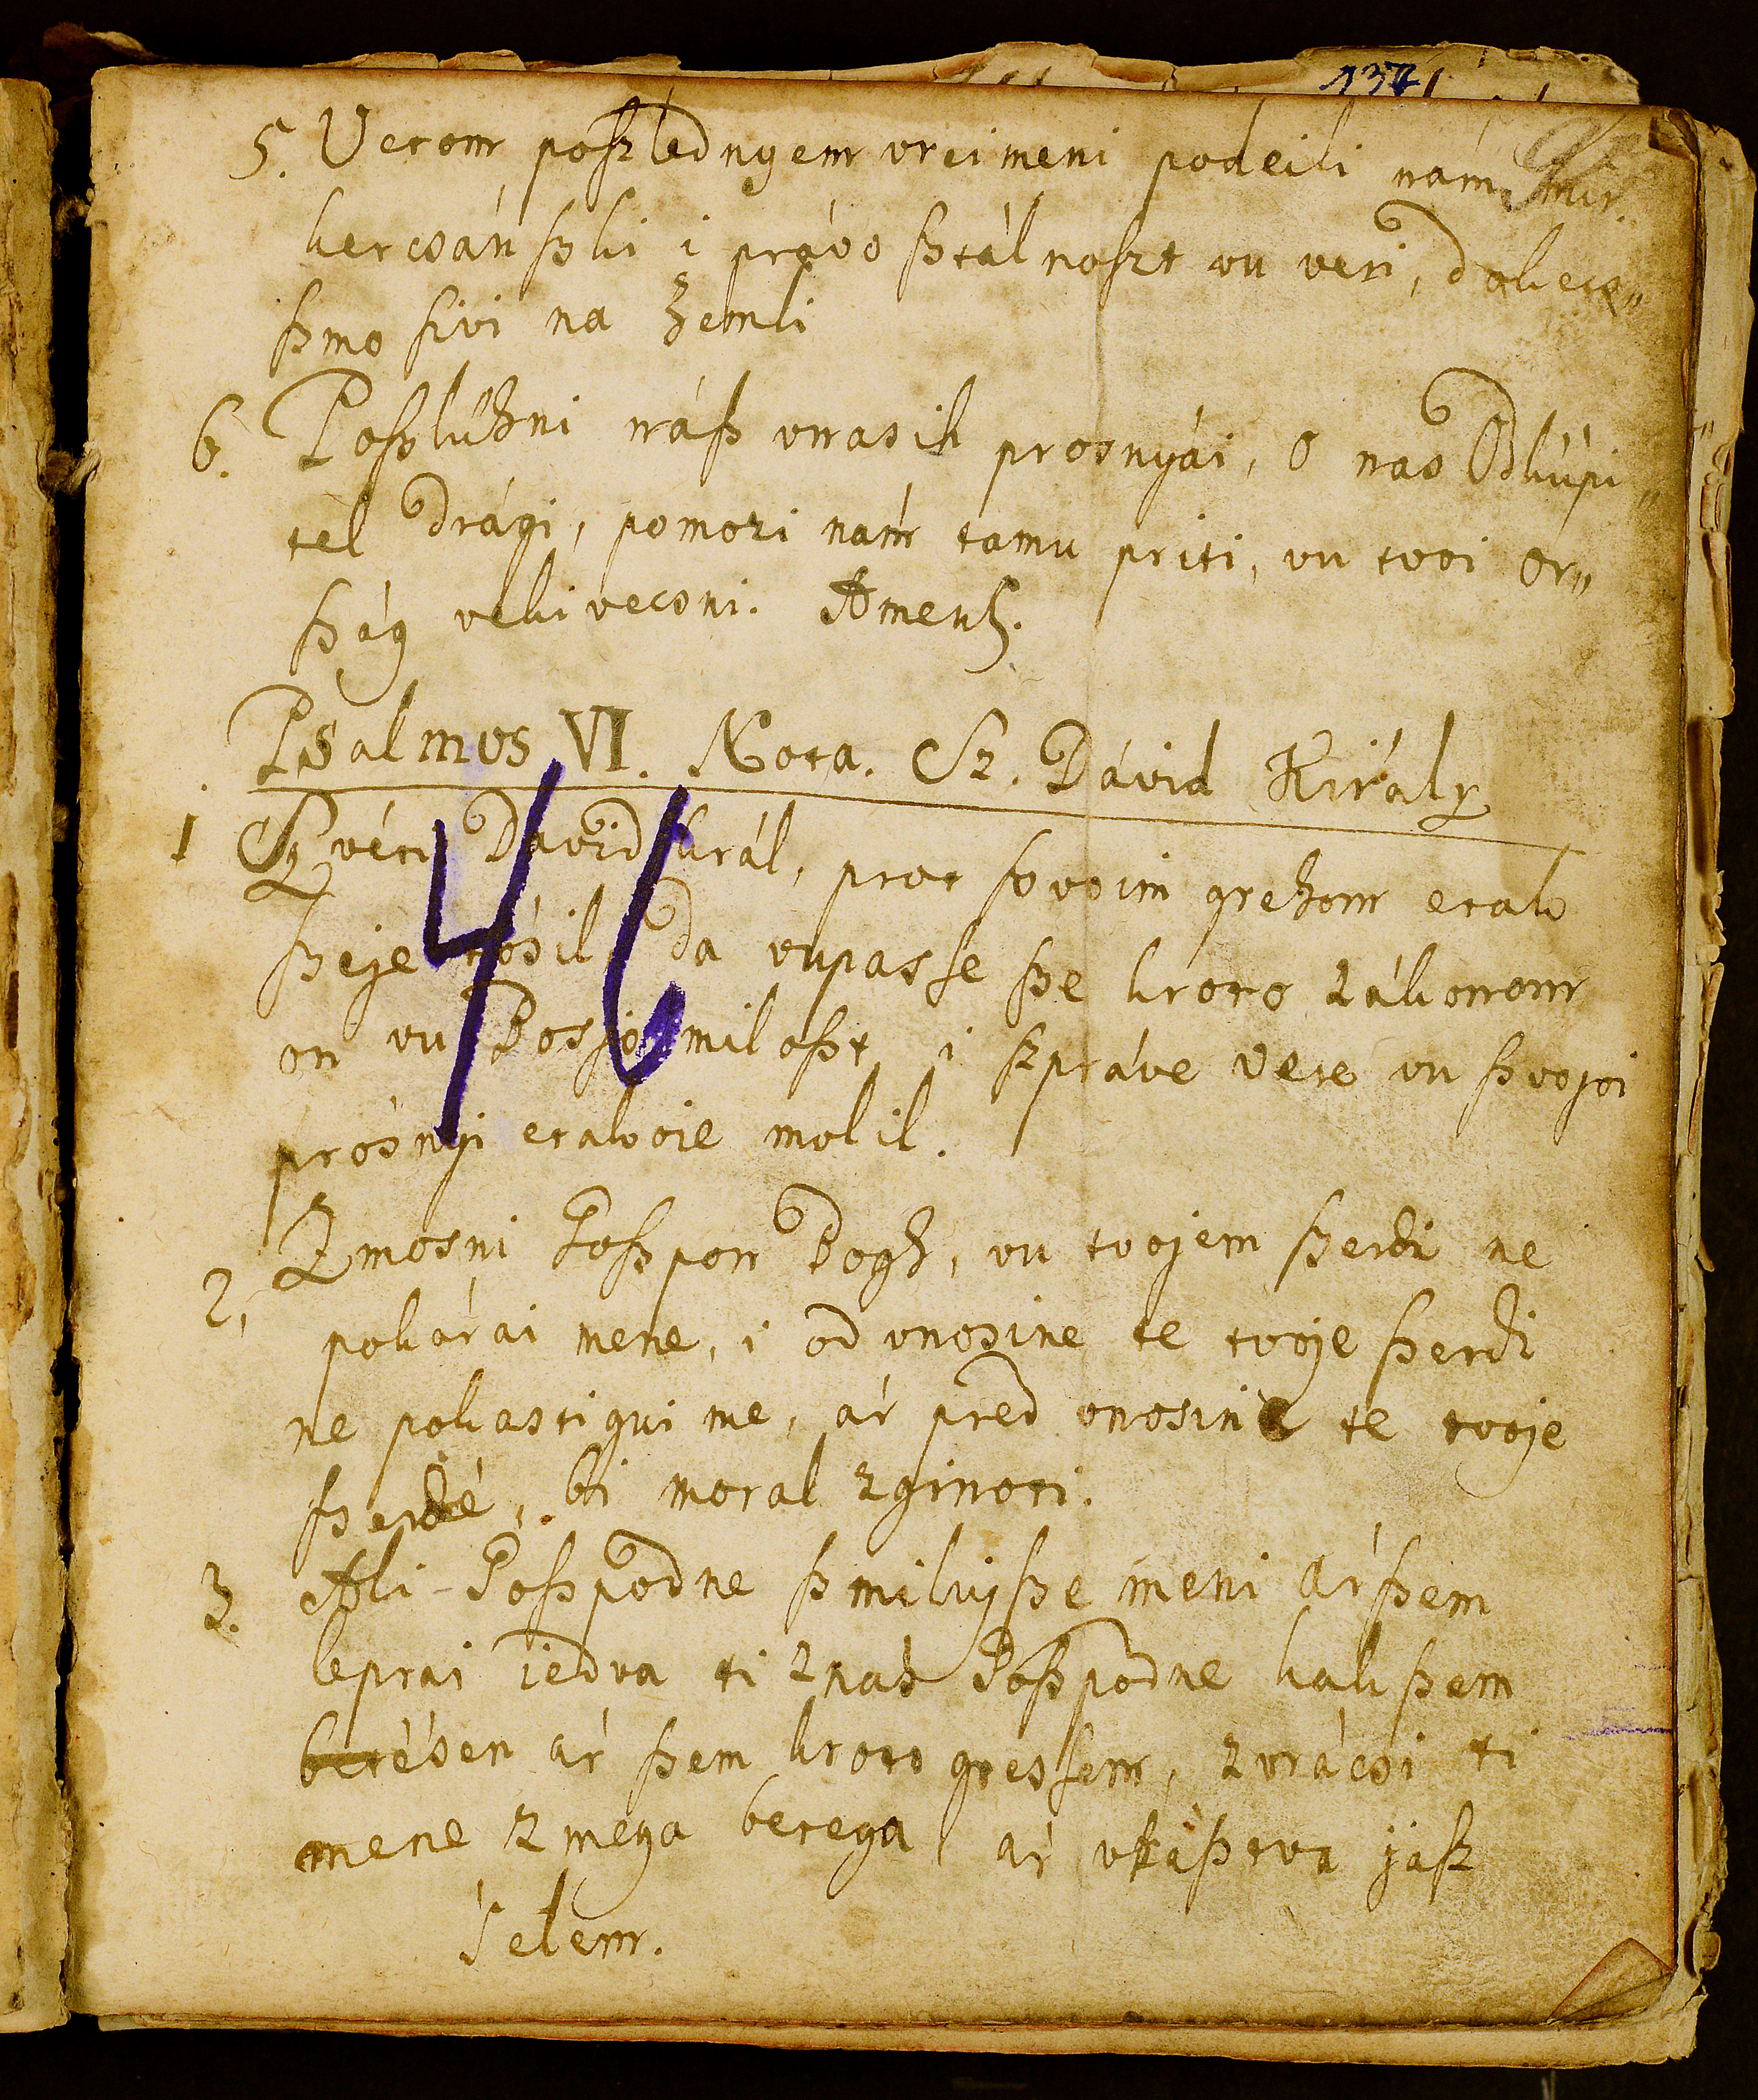 137
5. Vetom poszlednyem vreimeni podeili nám mir.
kercsánszki i právo sztálnoszt vu veri, dokecs„
szmo sivi na Zemli
6. Poszlühni nász vnasih prosnyái, o nas Odküpi„
tel Drági, pomozi nám tamu priti, vu tvoi or„
szág vekivecsni. Amen.
Psalmus VI. Nota. Sz. Dávid Király
46
1 Szvéti David král, prot szvoim grehom etak
szeje tósil da vupasse sze kroto zákonom
on vu Bosjo miloszt, i szpráve vere vu szvojoi
prósnyi etakoie molil.
2. Zmosni Goszpon Bogh, vu tvojem szerdi ne
pokárai mene, i od vnosine te tvoje szerdi
ne pokastigui me, ár pred vnosine te tvoje
szerdé, bi moral zginoti.
3. Ali Goszpodne szmilujsze meni ár szem
leprai jedva ti znás Goszpodne kak szem
betésen ár szem kroto gressem, zvrácsi ti
mene z mega betega ár jasz
selem.